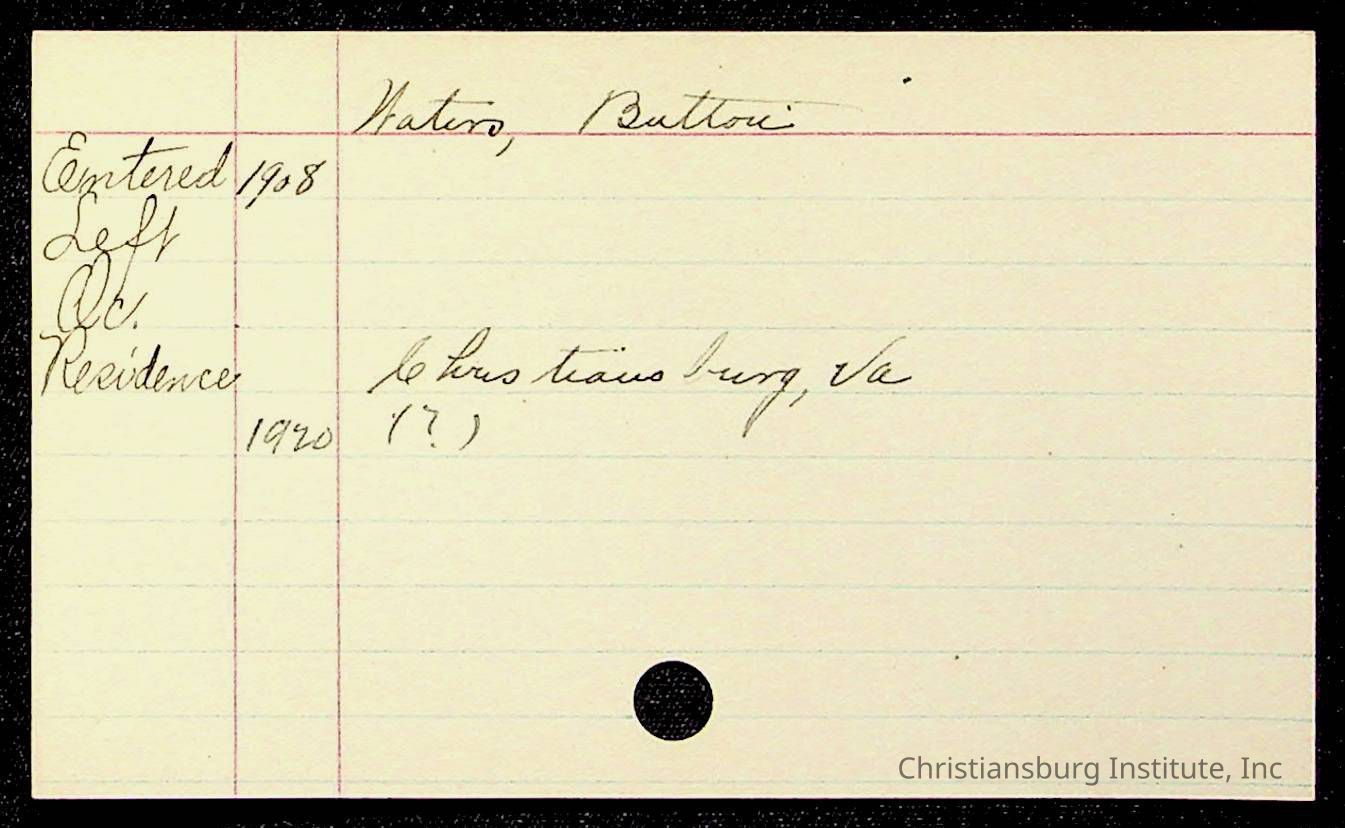 Waters, Button
Entered 1908
Left
Oc.
Residence Christiansburg, Va
1920 (?)
Christiansburg Institute, Inc